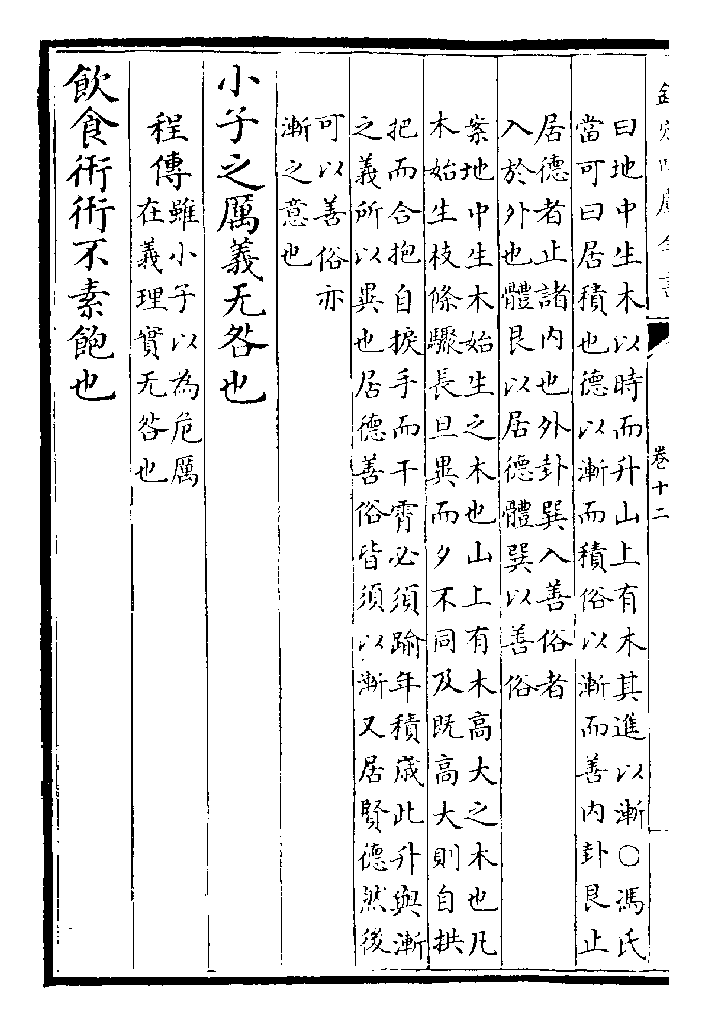 欽定四庫全書
卷十二
曰地中生木以時而升山上有木其進以漸○馮氏
當可曰居積也德以漸而積俗以漸而善内卦艮止
居德者止諸内也外卦巽入善俗者
入於外也體艮以居德體巽以善俗
案地中生木始生之木也山上有木高大之木也凡
木始生枝條驟長旦異而夕不同及既高大則自拱
把而合抱自捩手而干霄必須踰年積歳此升與漸
之義所以異也居德善俗皆須以漸又居賢德然後
可以善俗亦
漸之意也
小子之厲義无咎也
程傳雖小子以為危厲
在義理實无咎也
飲食衎衎不素飽也